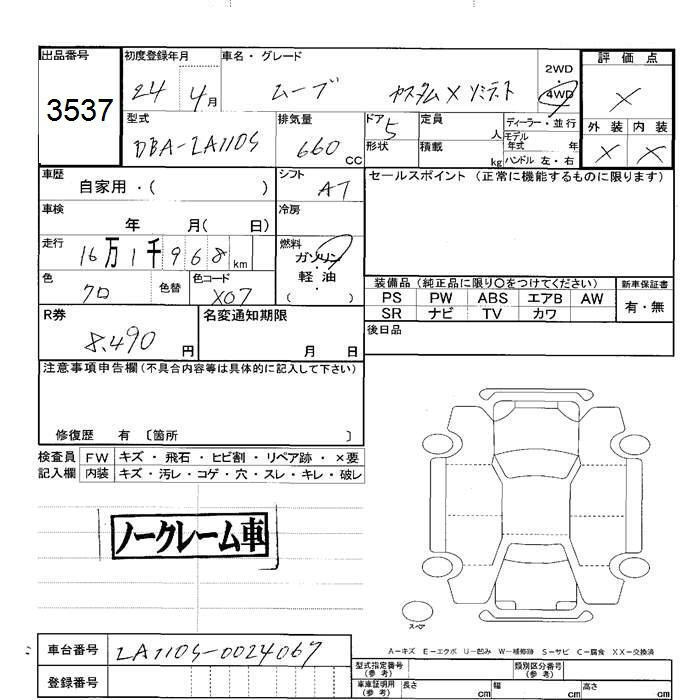 出品番号 初度登録年月 車名・グレード 2WD 評価点
3537 24 4月 ムーブ カスタム X リミテッド 4WD X
型式 排気量 ドア 定員 ディーラー・並行 外装 内装
DBA-LA110S 660 CC 5 人 モデル年式 年 X X
形状 積載 kg ハンドル 左・右
車歴 シフト セールスポイント (正常に機能するものに限ります)
自家用・( ) AT
車検 冷房
年 月( 日)
走行 燃料
16万1千968km ガソリン・軽油
( )
色 色替 色コード 装備品 (純正品に限り○をつけてください) 新車保証書
クロ X07 PS PW ABS エアB AW 有・無
SR ナビ TV カワ
R券 名変通知期限 後日品
8,490 円 月 日
注意事項申告欄 (不具合内容等は具体的に記入して下さい)
修復歴 有 〔箇所 〕
検査員 FW キズ・飛石・ヒビ割・リペア跡・×要
記入欄 内装 キズ・汚レ・コゲ・穴・スレ・キレ・破レ
ノークレーム車
スペア
A−キズ E−エクボ U−凹み W−補修跡 S−サビ C−腐食 XX−交換済
車台番号 LA110S-0024067
登録番号
型式指定番号 (参考) 類別区分番号 (参考)
車庫証明用 (参考) 長さ cm 幅 cm 高さ cm